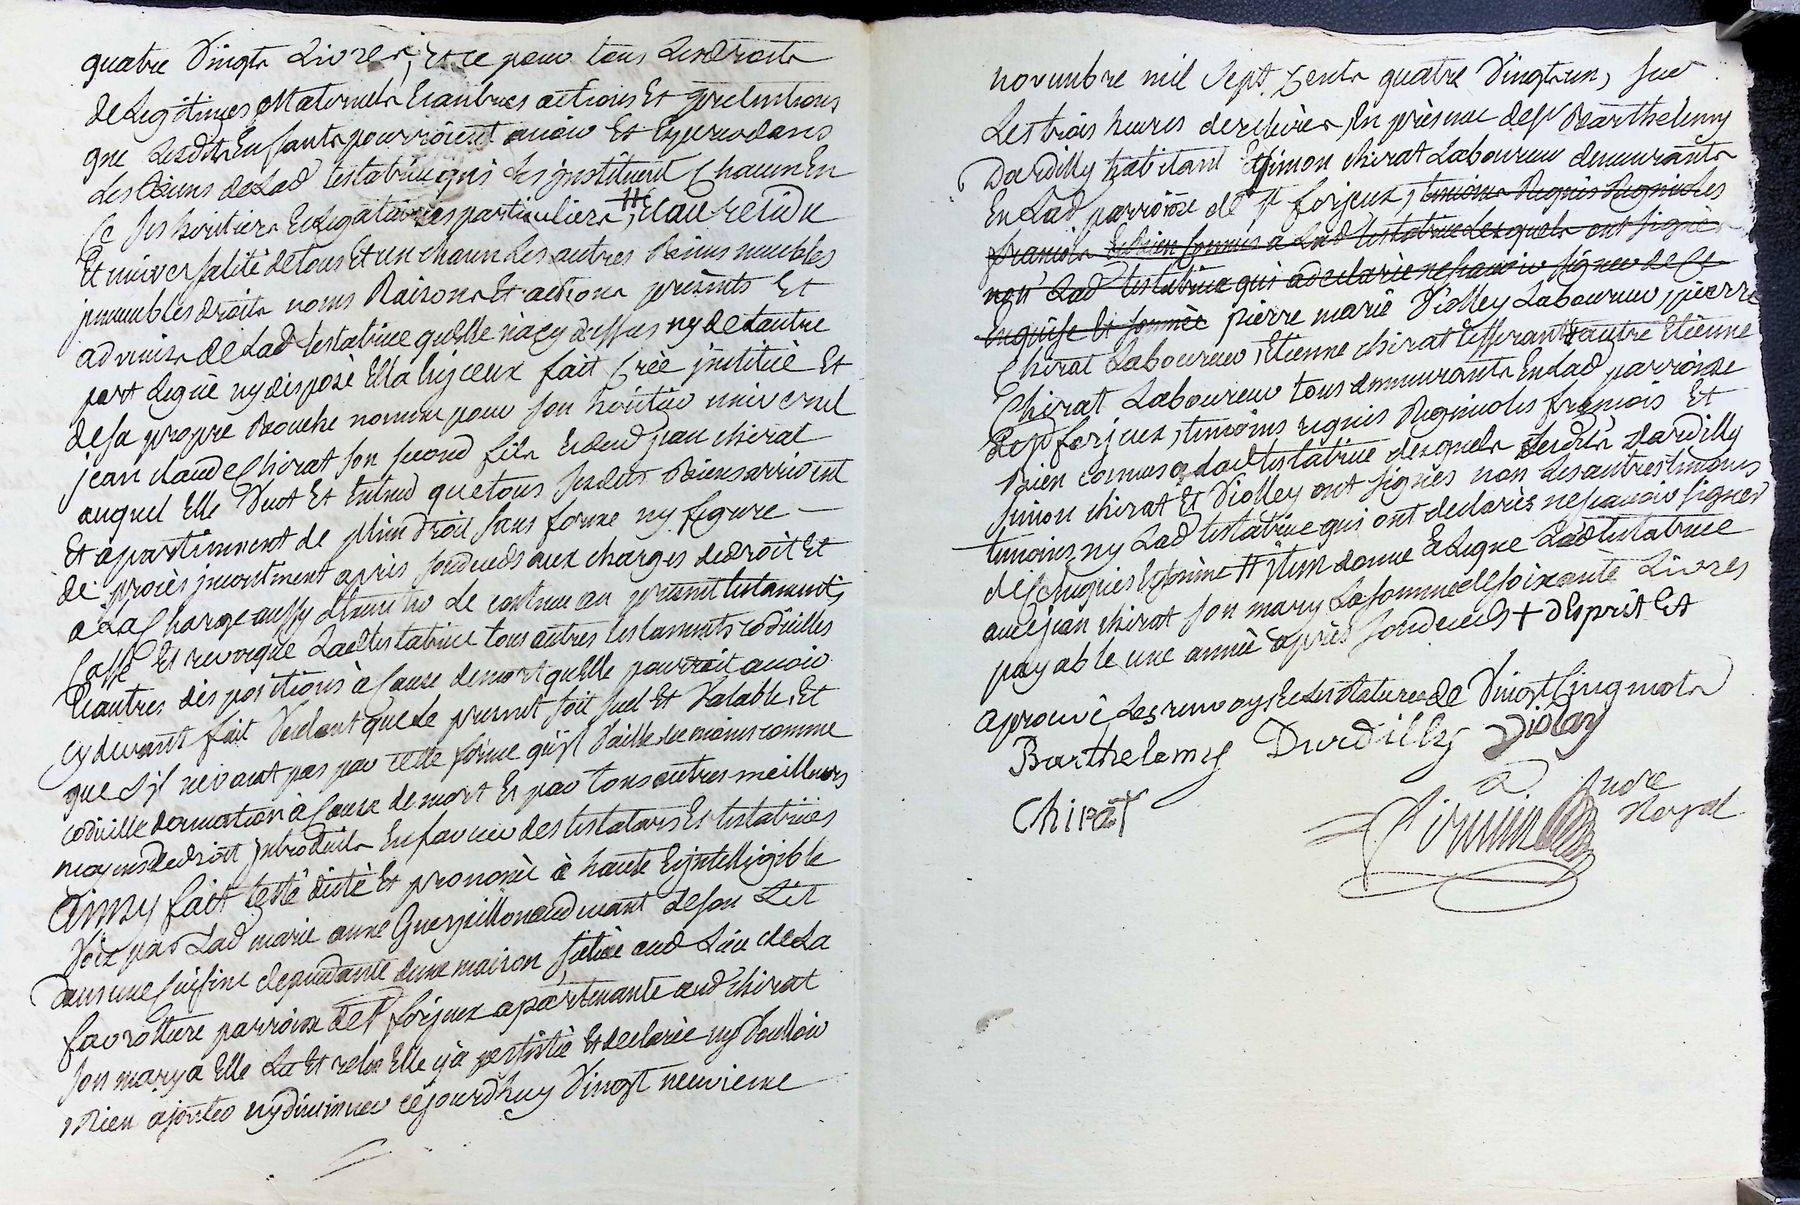 quatre Vingts Livres, et ce pour tous Les droits
de Legitimes Maternels Et autres actions Et pretentions
que Lesdits Enfants pourroient avoir Et Esperer dans
Les Biens de Lad testatrice qui Les instituent Chacun En
Ce ses heritiers Et Legataires particuliers ++, Et au Residu
Et universalité de tous Et un chacun Les autres Biens meubles
jmmeubles droits noms Raisons Et actions presents Et
advenir de Lad testatrice quelle n'a cy dessus ny de L'autre
part Legué ny disposé Elle a Luy ceux fait Créé jnstitué Et
de sa propre Bouche nommé pour son heritier universel
jean claude Chirat son second fils Et dud jean chirat
auquel Elle Veut Et Entend que tous sesdits Biens arrivent
Et apartiennent de plein droit sans forme ny figure
de procès jncontinent apres sondeceds aux charges de droit Et
a La Charge aussy d'Executer Le contenu au present testament,
Casse Et revoque Lad testatrice tous autres testaments codicilles
Et autres dispositions à Cause de mort quelle pourroit avoir
Cy devant fait Voulant que Le present soit seul Et Valable, Et
que s'il ne vaut pas par cette forme qu'il Vaille du moins comme
codicille donnation à Cause de mort Et par tous autres meilleurs
moyens de droit jntroduits En faveur des testateurs Et testatrices
Ainsy fait testé dicté Et prononcé à haute Et jntelligible
Voix par Lad marie anne Guerpillon aud devant de son Lit
dans une Cuisine dependante d'une maison sittuée aud Lieu de La
favrottiere parroisse de St forjeux apartenante aud Chirat
son mary a Elle Lu Et relu Elle y à persistée Et declarée ny Voulloir
Rien ajouter ny diminuer cejourd'huy Vingt neuvieme
novembre mil Sept Cents quatre Vingt un, sur
Les trois heures de relevée, En présence de Sr Barthelemy
Dardilly habitant Et Simon chirat Laboureur demeurants
En Lad parroisse de St forjeux, temoins Requis Regnicoles
francois Et bien connus a Lad testatrice Lesquels ont signé
non Lad testatrice qui a declarée ne sçavoir signer de Ce
Enquise Et sommée pierre marie Violley Laboureur, pierre
Chirat Laboureur, Etienne chirat tisserant Et autre Etienne
Chirat Laboureur tous demeurants En Lad parroisse
de St forjeux, temoins requis Regnicoles françois Et
Bien connus a Lad testatrice desquels Lesdits Dardilly
Simon chirat Et Violley ont signés non Les autres temoins
temoins ny Lad testatrice qui ont declarés ne sçavoir signer
de Ce Enquis Et sommé ++ jtem donne Et Legue Lad testatrice
aud jean chirat son mary La somme de Soixante Livres
payable une année après sondeceds + d'Esprit Et
aprouvé Les renvoys Et Les ratures de Vingt Cinq mots
Barthelemy Dardilly Violay
Chirat
Nore
Royal